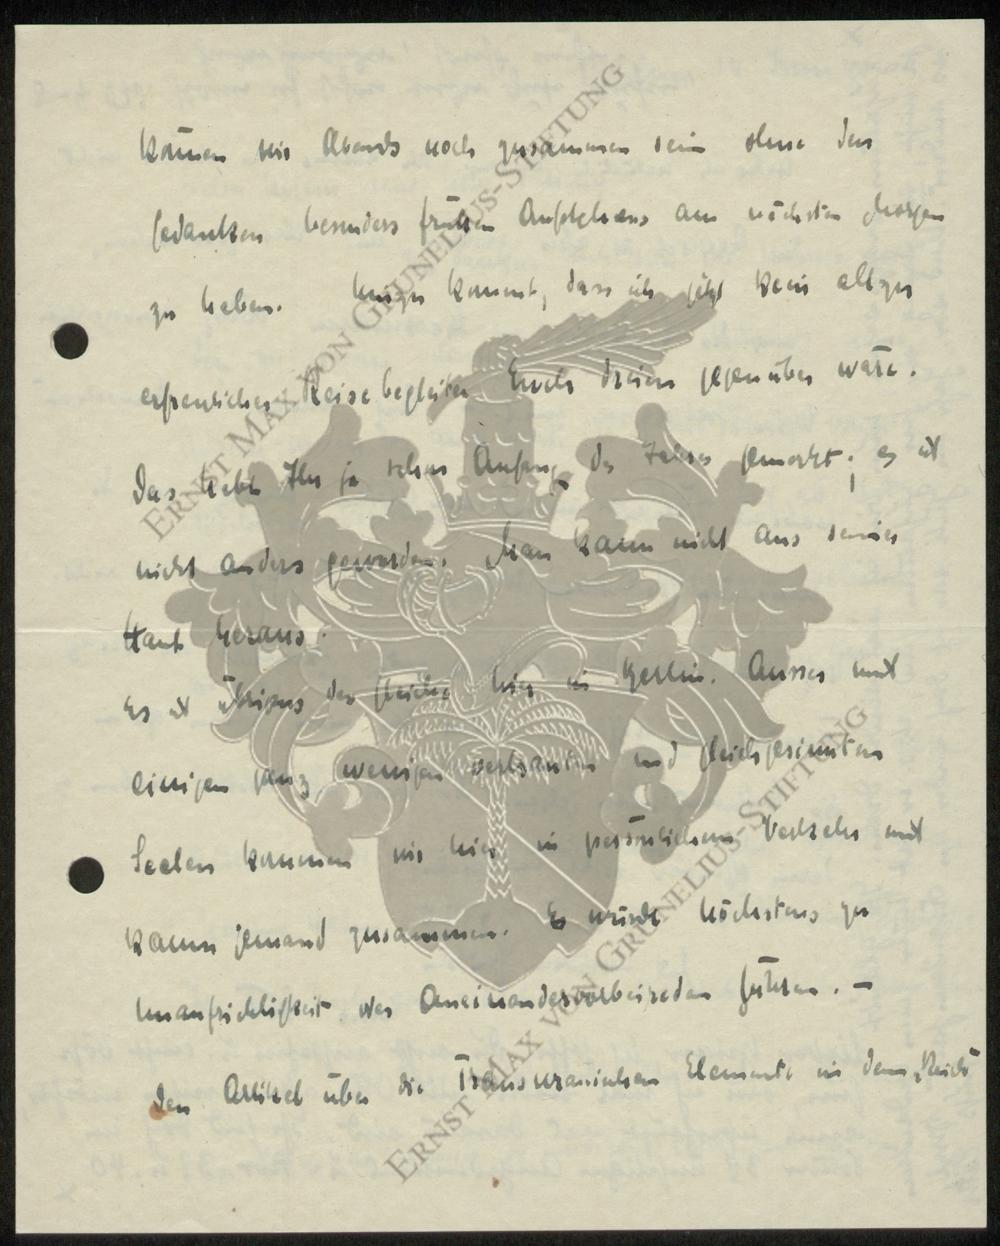 können wir Abends noch zusammen sein ohne den
Gedanken besonders frühen Aufstehens am nächsten Morgen
zu haben. Hinzu kommt, dass ich jetzt kein allzu
erfreulicher Reisebegleiter Euch dreien gegenüber wäre.
Das habt Ihr ja schon Anfang des Jahres gemerkt; es ist
nicht anders geworden. Man kann nicht aus seiner
Haut heraus.
Es ist übrigens das gleiche hier in Berlin. Ausser mit
einigen ganz wenigen vertrauten und gleichgesinnten
Seelen kommen wir hier in persönlichem Verkehr mit
kaum jemand zusammen. Es würde höchstens zu
Unaufrichtigkeit oder Aneinandervorbeireden führen. —
Den Artikel über die Transuranischen Elemente in dem „Reich"
ERNST MAX VON GRUNELIUS-STIFTUNG
ERNST MAX VON GRUNELIUS-STIFTUNG